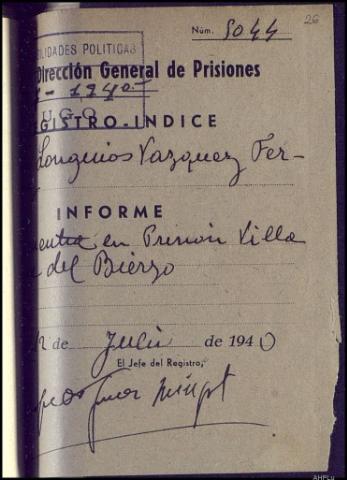 26
Núm. 5044
LIDADES POLITICAS
Dirección General de Prisiones
1940
UGO
GISTRO-INDICE
Longinos Vazquez Fer-
INFORME
en Prisión Villa
del Bierzo
de Julio de 1940
El Jefe del Registro,
AHPLu